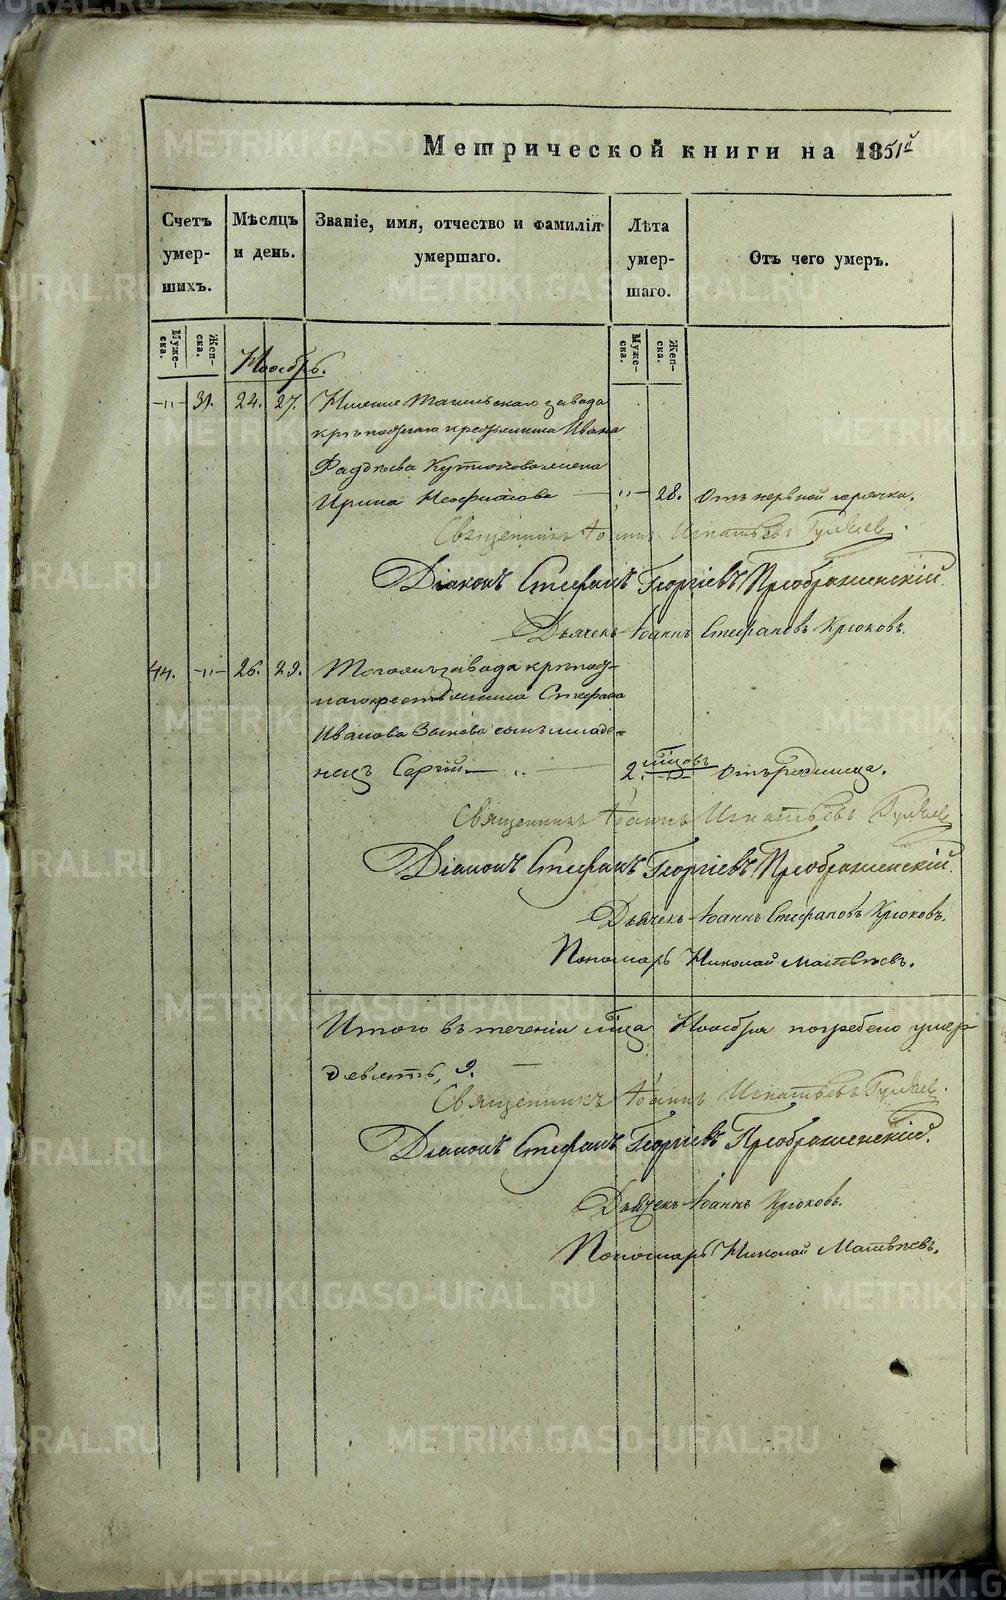 Метрической книги на 1851й
Счетъ умер- шихъ.
Мѣсяцъ и день.
Званіе, имя, отчество и фамилія умершаго.
Лѣта умер- шаго.
Отъ чего умеръ.
Муже- ска.
Жен- ска.
Муже- ска.
Жен- ска.
Ноябрь.
-"- 31. 24. 27. Нижне Тагильскаго завода
крѣпостнаго крестьянина Ивана
Фадѣева жена
Ирина -"- 28. Отъ нервной горячки.
Священникъ Іоаннъ Игнатьевъ
Діаконъ Стефанъ Георгіевъ Преображенскій.
Дьячекъ Іоаннъ Стефановъ Крюковъ.
44. -"- 26. 29. Тогожъ завода крѣпост-
наго крестьянина Стефана
Иванова Зыкова сынъ младе-
нецъ Сергій 2. мцовъ Отъ родимца.
Священникъ Іоаннъ Игнатьевъ
Діаконъ Стефанъ Георгіевъ Преображенскій.
Дьячекъ Іоаннъ Стефановъ Крюковъ.
Пономарь Николай Матвѣевъ.
Итого въ теченіи мца Ноября погребено умер
девять, 9.
Священникъ Іоаннъ Игнатьевъ
Діаконъ Стефанъ Георгіевъ Преображенскій.
Дьячекъ Іоаннъ Крюковъ.
Пономарь Николай Матвѣевъ.
METRIKI.GASO-URAL.RU